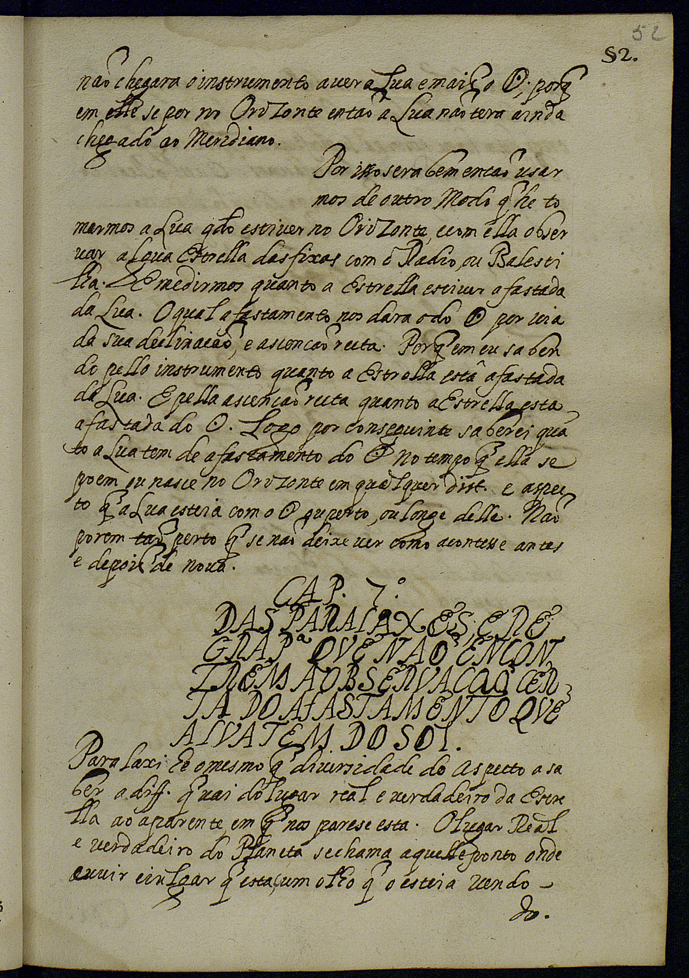 52
52.
não chegara o instrumento a ver a Lua e mais o ☉; porq̃
em elle se por no Orizonte então a Lua não tera ainda
chegado ao Meridiano.
Por isso sera bem então usar
mos de outro Modo q̃ he to
marmos a Lua qdo estiver no Orizonte, e com ella obser
var algua Estrella das fixas com o Radio, ou Balesti
lha. E medirmos quanto a Estrella estiver afastada
da Lua. O qual afastamento nos dara o do ☉ por via
da sua declinação, e ascenção recta. Porq̃ em eu saben
do pello instrumento quanto a Estrella está afastada
da Lua. E pella ascenção recta quanto a Estrella esta
afastada do ☉. Logo por conseguinte saberei quã
to a Lua tem de afastamento do ☉ no tempo q̃ ella se
poem ou nasce no Orizonte em qualquer dist. e aspec
to q̃ a Lua esteia com o ☉ ou perto, ou longe delle. Não
porem tam perto q̃ se não deixe ver como acontesse antes
e depois de nova.
CAP. 7.º
DAS PARALAXES, E RE
GRA Pª QUE NÃO ENCON
TREM A OBSERVAÇÃO CER
TA DO AFASTAMENTO QUE
A LUA TEM DO SOL.
Paralaxi he o mesmo q̃ diversidade do Aspecto a sa
ber a diff. q̃ vai do lugar real e verdadeiro da Estre
lla ao aparente em q̃ nos parese esta. O lugar Real
e verdadeiro do Planeta se chama aquelle ponto onde
q̃ esta, um olho q̃ o esteia vendo
do.